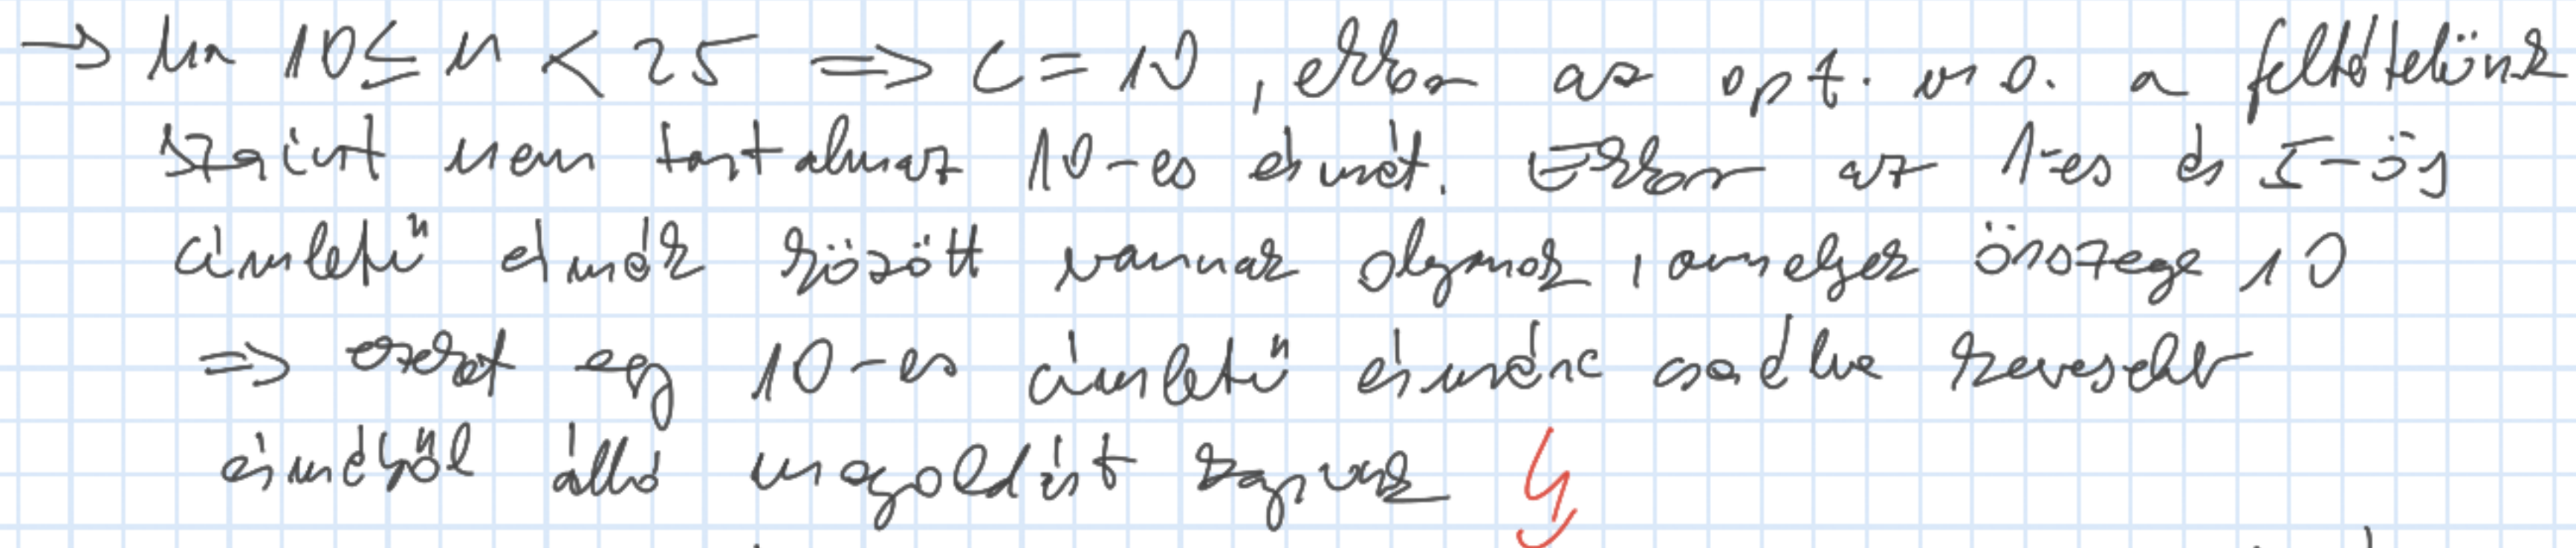 → Ha 10 ≤ n < 25 ⇒ c = 10, ekkor az opt. mo. a feltételünk
szerint nem tartalmaz 10-es érmét. Ekkor az 1-es és 5-ös
címletű érmék között vannak olyanok, amelyek összege 10
⇒ ezeket egy 10-es címletű érmére cserélve kevesebb
érméből álló megoldást kapunk ↯